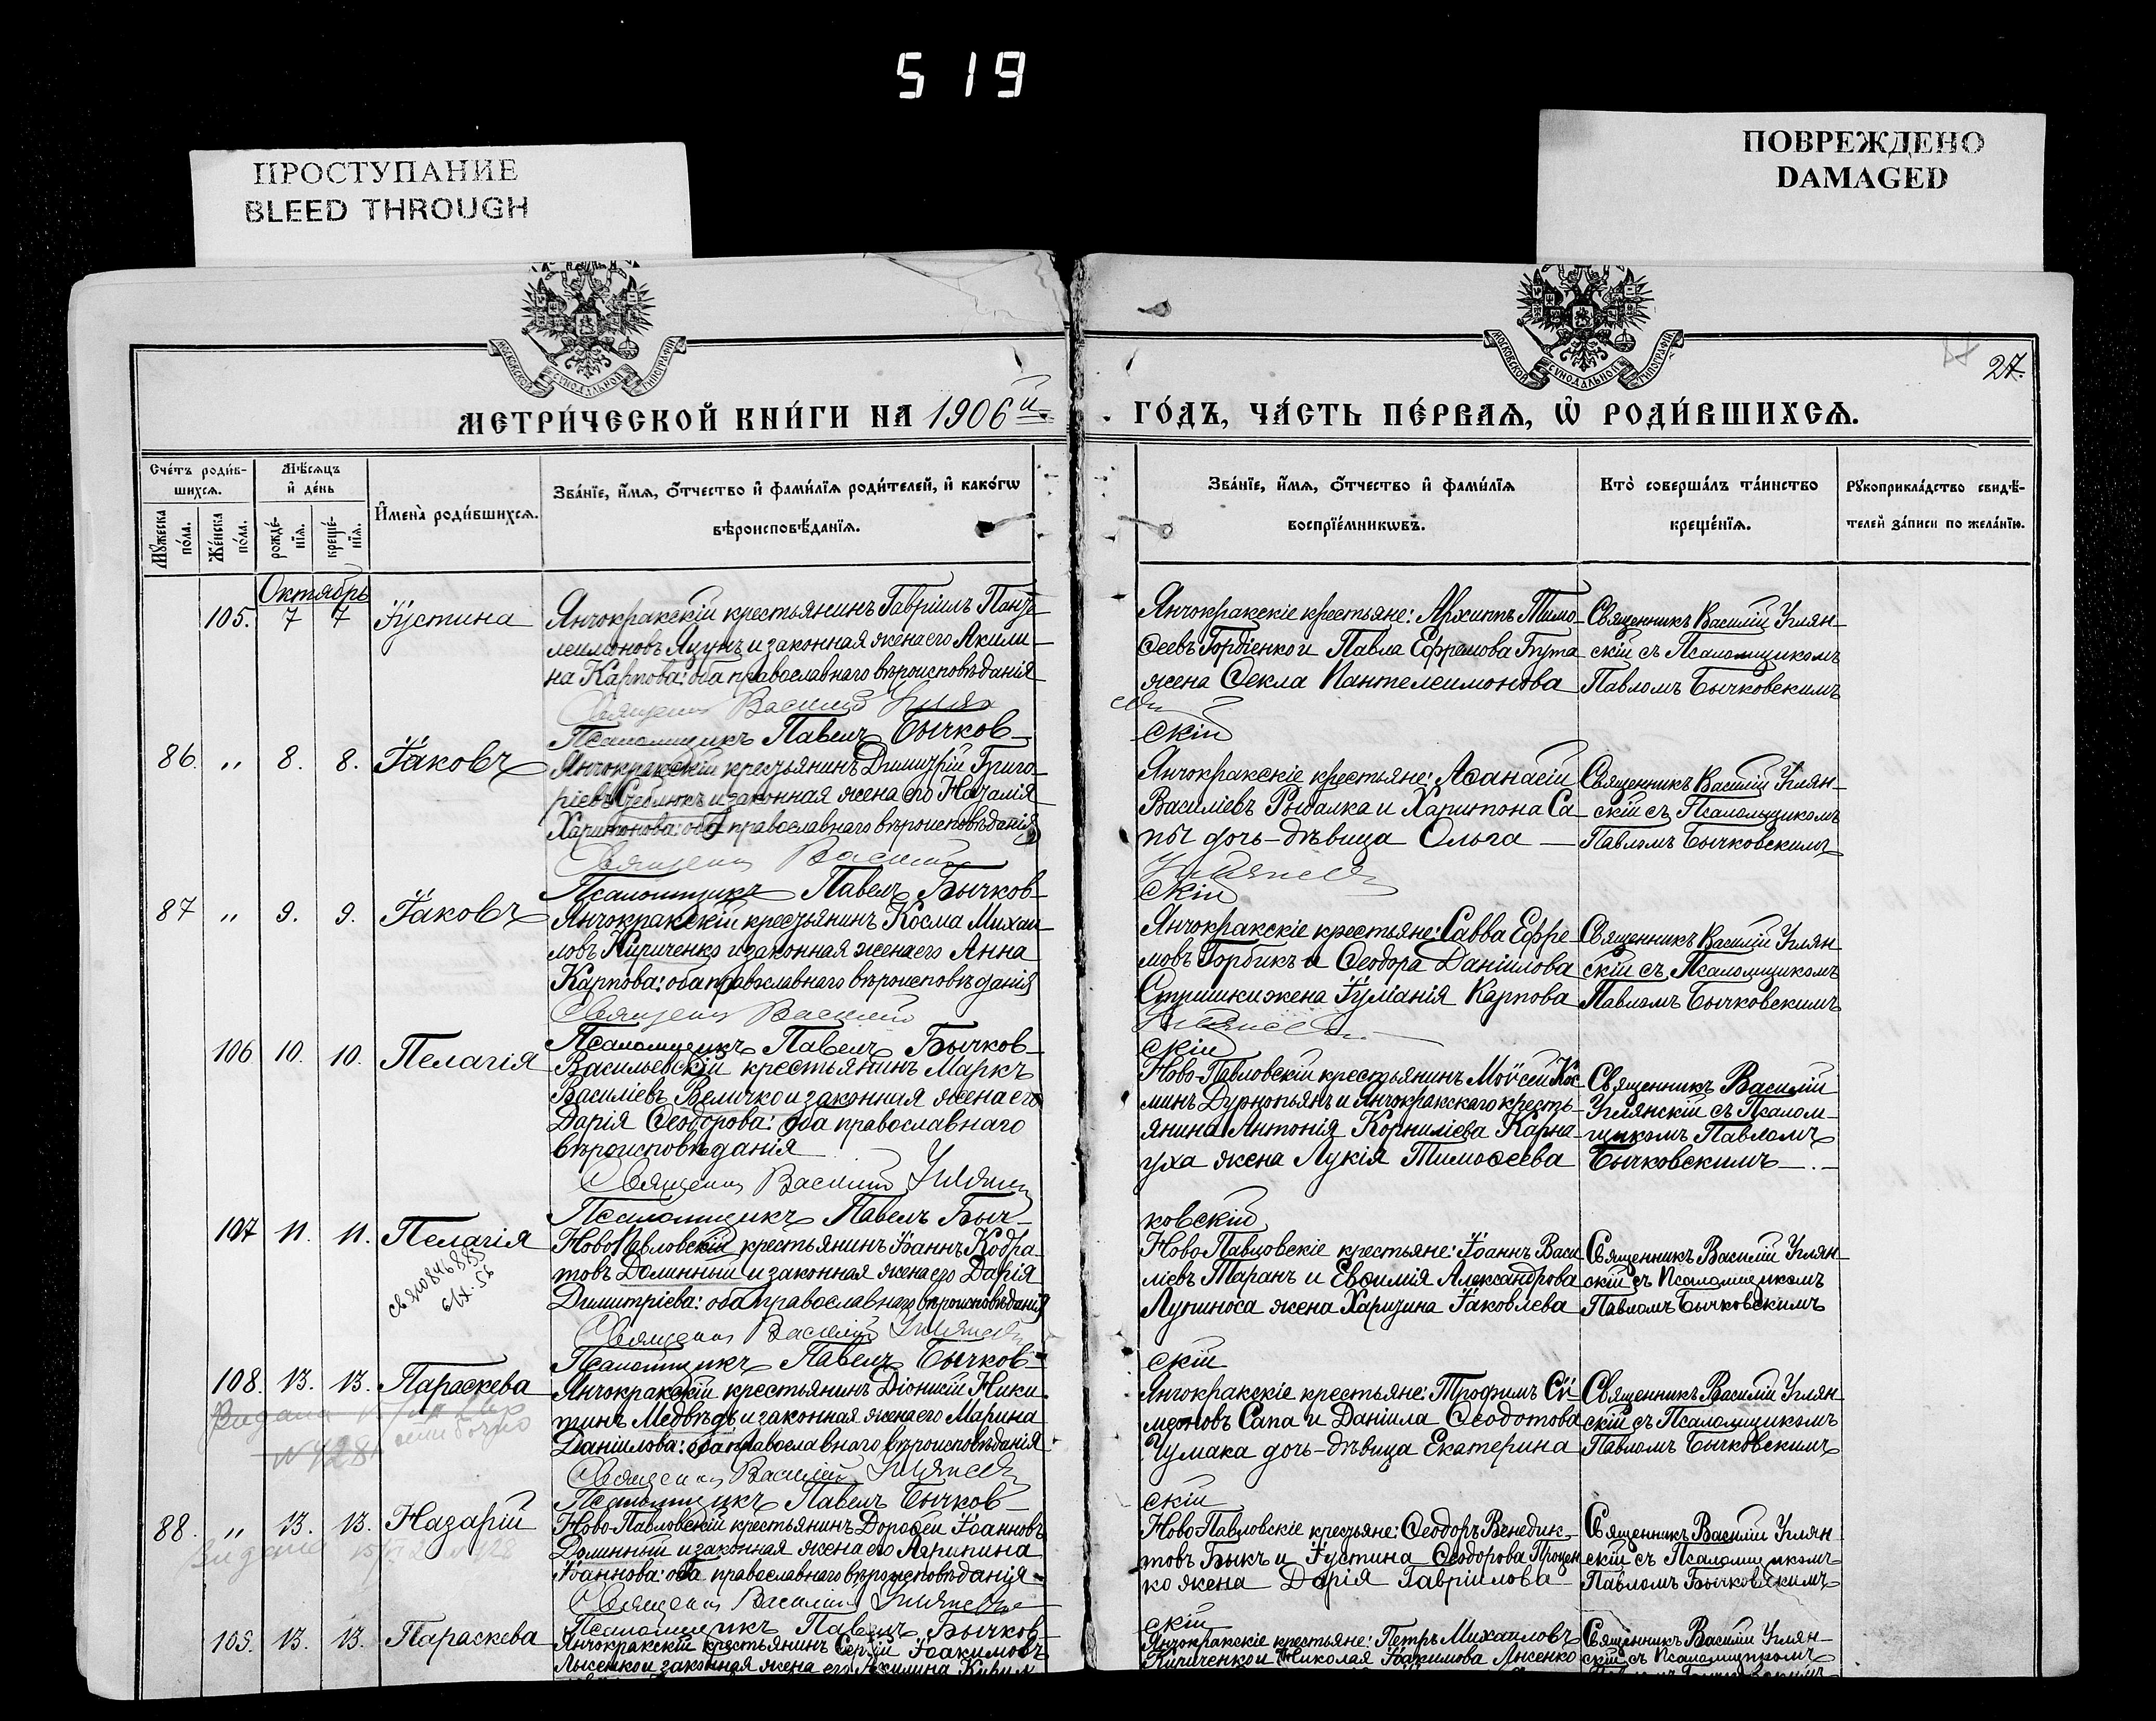 519
ПРОСТУПАНИЕ
BLEED THROUGH
ПОВРЕЖДЕНО
DAMAGED
МОСКОВСКОЙ СѴНОДАЛЬНОЙ ТИПОГРАФІИ
МОСКОВСКОЙ СѴНОДАЛЬНОЙ ТИПОГРАФІИ
27.
МЕТРИ́ЧЕСКОЙ КНИ́ГИ НА 1906й
ГО́ДЪ, ЧА́СТЬ ПЕ́РВАЯ, Ѡ҆ РОДИ́ВШИХСѦ.
Сче́тъ роди́в-
шихсѧ.
Мꙋ́жеска по́ла.
Же́нска по́ла.
Мѣ́сѧцъ
и҆ де́нь
рожде́-
нїѧ.
креще́-
нїѧ.
И҆мена̀ роди́вшихсѧ.
Зва́нїе, и҆́мѧ, ѻ҆́тчество и҆ фами́лїѧ роди́телей, и҆ како́гѡ
вѣроисповѣ́данїѧ.
Зва́нїе, и҆́мѧ, ѻ҆́тчество и҆ фами́лїѧ
воспрїе́мникѡвъ.
Кто̀ соверша́лъ та́инство
креще́нїѧ.
Рꙋкоприкла́дство свидѣ́-
телей за́писи по жела́нїю.
Октябрь
105. 7 7 Іустина
Янчокракскій крестьянинъ Гавріилъ Панте-
леимоновъ Яцунъ и законная жена его Акили-
на Карпова: оба православнаго вѣроисповѣданія
Янчокракскіе крестьяне: Архиппъ Тимо-
ѳеевъ Гордіенко и Павла Ефремова Бута
жена Ѳекла Пантелеимонова
Священникъ Василій Углян-
скій съ Псаломщикомъ
Павломъ Бычковскимъ
Священник Василий Углян
Псаломщикъ Павелъ Бычков-
скій
86. " 8. 8. Іаковъ
Янчокракскій крестьянинъ Димитрій Григо-
ріевъ Стеблюкъ и законная жена его Наталія
Харитонова: оба православнаго вѣроисповѣданія
Янчокракскіе крестьяне: Аѳанасій
Василіевъ Рыбалка и Харитона Са-
пы дочь-дѣвица Ольга
Священникъ Василій Углян-
скій съ Псаломщикомъ
Павломъ Бычковскимъ
Священник Василий
Углянск
Псаломщикъ Павелъ Бычков-
скій
87 " 9. 9. Іаковъ
Янчокракскій крестьянинъ Косма Михаи-
ловъ Кириченко и законная жена его Анна
Карпова: оба православнаго вѣроисповѣданія
Янчокракскіе крестьяне: Савва Ефре-
мовъ Горбикъ и Ѳеодора Даніилова
Стришки жена Іуліанія Карпова
Священникъ Василій Углян-
скій съ Псаломщикомъ
Павломъ Бычковскимъ
Священник Василий
Углянск
Псаломщикъ Павелъ Бычков-
скій
106 10. 10. Пелагія
Васильевскій крестьянинъ Маркъ
Василіевъ Величко и законная жена его
Дарія Ѳеодорова: оба православнаго
вѣроисповѣданія
Ново-Павловскій крестьянинъ Моѵсей Кос-
минъ Дурнопьянъ и Янчокракскаго кресть-
янина Антонія Корниліева Карна-
уха жена Лукія Тимоѳеева
Священникъ Василій
Углянскій съ Псалом-
щикомъ Павломъ
Бычковскимъ
Священник Василий Углянск
Псаломщикъ Павелъ Быч-
ковскій
107 11. 11. Пелагія
НовоПавловскій крестьянинъ Іоаннъ Кодра-
товъ Долинный и законная жена его Дарія
Димитріева: оба православнаго вѣроисповѣданія
НовоПавловскіе крестьяне: Іоаннъ Васи-
ліевъ Таранъ и Евѳимія Александрова
Лупиноса жена Харитина Іаковлева
Священникъ Василій Углян-
скій съ Псаломщикомъ
Павломъ Бычковскимъ
Священник Василий Углянск
Псаломщикъ Павелъ Бычков-
скій
108. 13. 13. Параскева
Янчокракскій крестьянинъ Діонисій Ники-
тинъ Медвѣдь и законная жена его Марина
Даніилова: оба православнаго вѣроисповѣданія
Янчокракскіе крестьяне: Трофимъ Сѵ-
меоновъ Сапа и Даніила Ѳеодотова
Чумака дочь-дѣвица Екатерина
Священникъ Василій Углян-
скій съ Псаломщикомъ
Павломъ Бычковскимъ
Священник Василий Углянск
Псаломщикъ Павелъ Бычков-
скій
88. " 13. 13. Назарій
Ново-Павловскій крестьянинъ Дороѳей Іоанновъ
Долинный и законная жена его Агрипина
Іоаннова: оба православнаго вѣроисповѣданія
НовоПавловскіе крестьяне: Ѳеодоръ Венедик-
товъ Быкъ и Іустина Ѳеодорова Процен-
ко жена Дарія Гавріилова
Священникъ Василій Углян-
скій съ Псаломщикомъ
Павломъ Бычковскимъ
Священник Василий Углянск
Псаломщикъ Павелъ Бычков-
скій
109. 13. 13. Параскева
Янчокракскій крестьянинъ Сергій Іоакимовъ
Лысенко и законная жена его Акилина Кирил
Янчокракскіе крестьяне: Петръ Михаиловъ
Кириченко и Николая Іоакимова Лысенко
Священникъ Василій Углян-
скій съ Псаломщикомъ